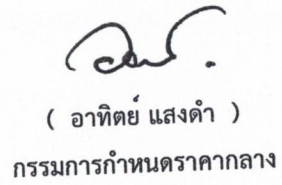 ( อาทิตย์ แสงดำ )
กรรมการกำหนดราคากลาง